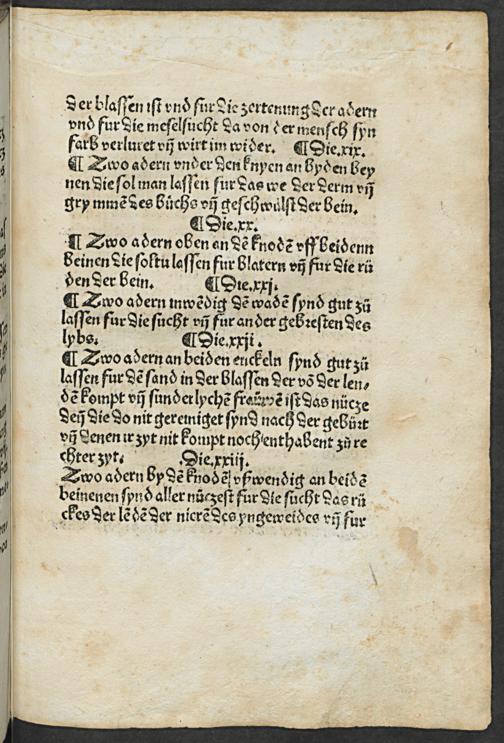 der blassen ist vnd fur die zertenung der adern
vnd fur die meselsucht da von der mensch syn
farb verluret vn̄ wirt im wider. ¶ Die.xix.
¶ Zwo adern vnder den knyen an byden bey
nen die sol man lassen fur das we der derm vn̄
grymmē des buchs vn̄ geschwulst der bein.
¶ Die.xx.
¶ Zwo adern oben an dē knodē vff beidenn
beinen die soltu lassen fur blatern vn̄ fur die rü
den der bein. ¶ Die.xxj.
¶ Zwo adern inwēdig dē wadē synd gut zü
lassen fur die sucht vn̄ fur ander gebresten des
lybs. ¶ Die.xxij.
¶ Zwo adern an beiden enckeln synd gut zü
lassen fur dē sand in der blassen der vō der len⸗
dē kompt vn̄ sunderlychē frauwē ist das nücze
den̄ die do nit gereiniget synd nach der gebürt
vn̄ denen ir zyt nit kompt noch ent habent zü re
chter zyt. Die.xxiij.
Zwo adern by dē knodē vswendig an beidē
beinenen synd aller nüczest fur die sucht das rü
ckes der lēdē der nierē des yngeweides vn̄ fur